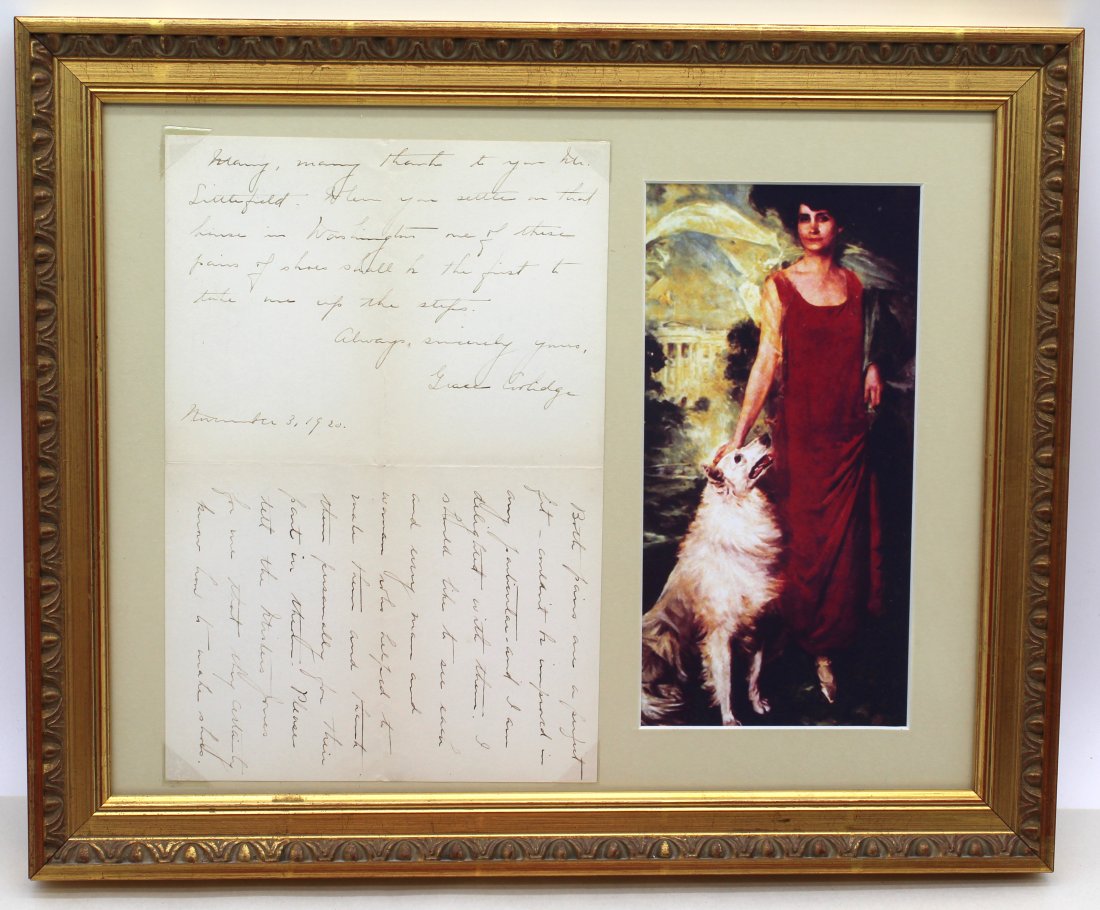 Many, many thanks to you Mr.
Littlefield. When you settle on that
house in Washington one of these
pairs of shoes shall be the first to
take me up the steps.
Always, sincerely yours,
Grace Coolidge
November 3, 1920.
Both pairs are a perfect
fit – couldn't be improved in
any particular and I am
delighted with them. I
should like to see each
and every man and
woman who helped to
make them and thank
them personally for their
part in them. Please
tell the Misters Jones
for me that they certainly
know how to make shoes.